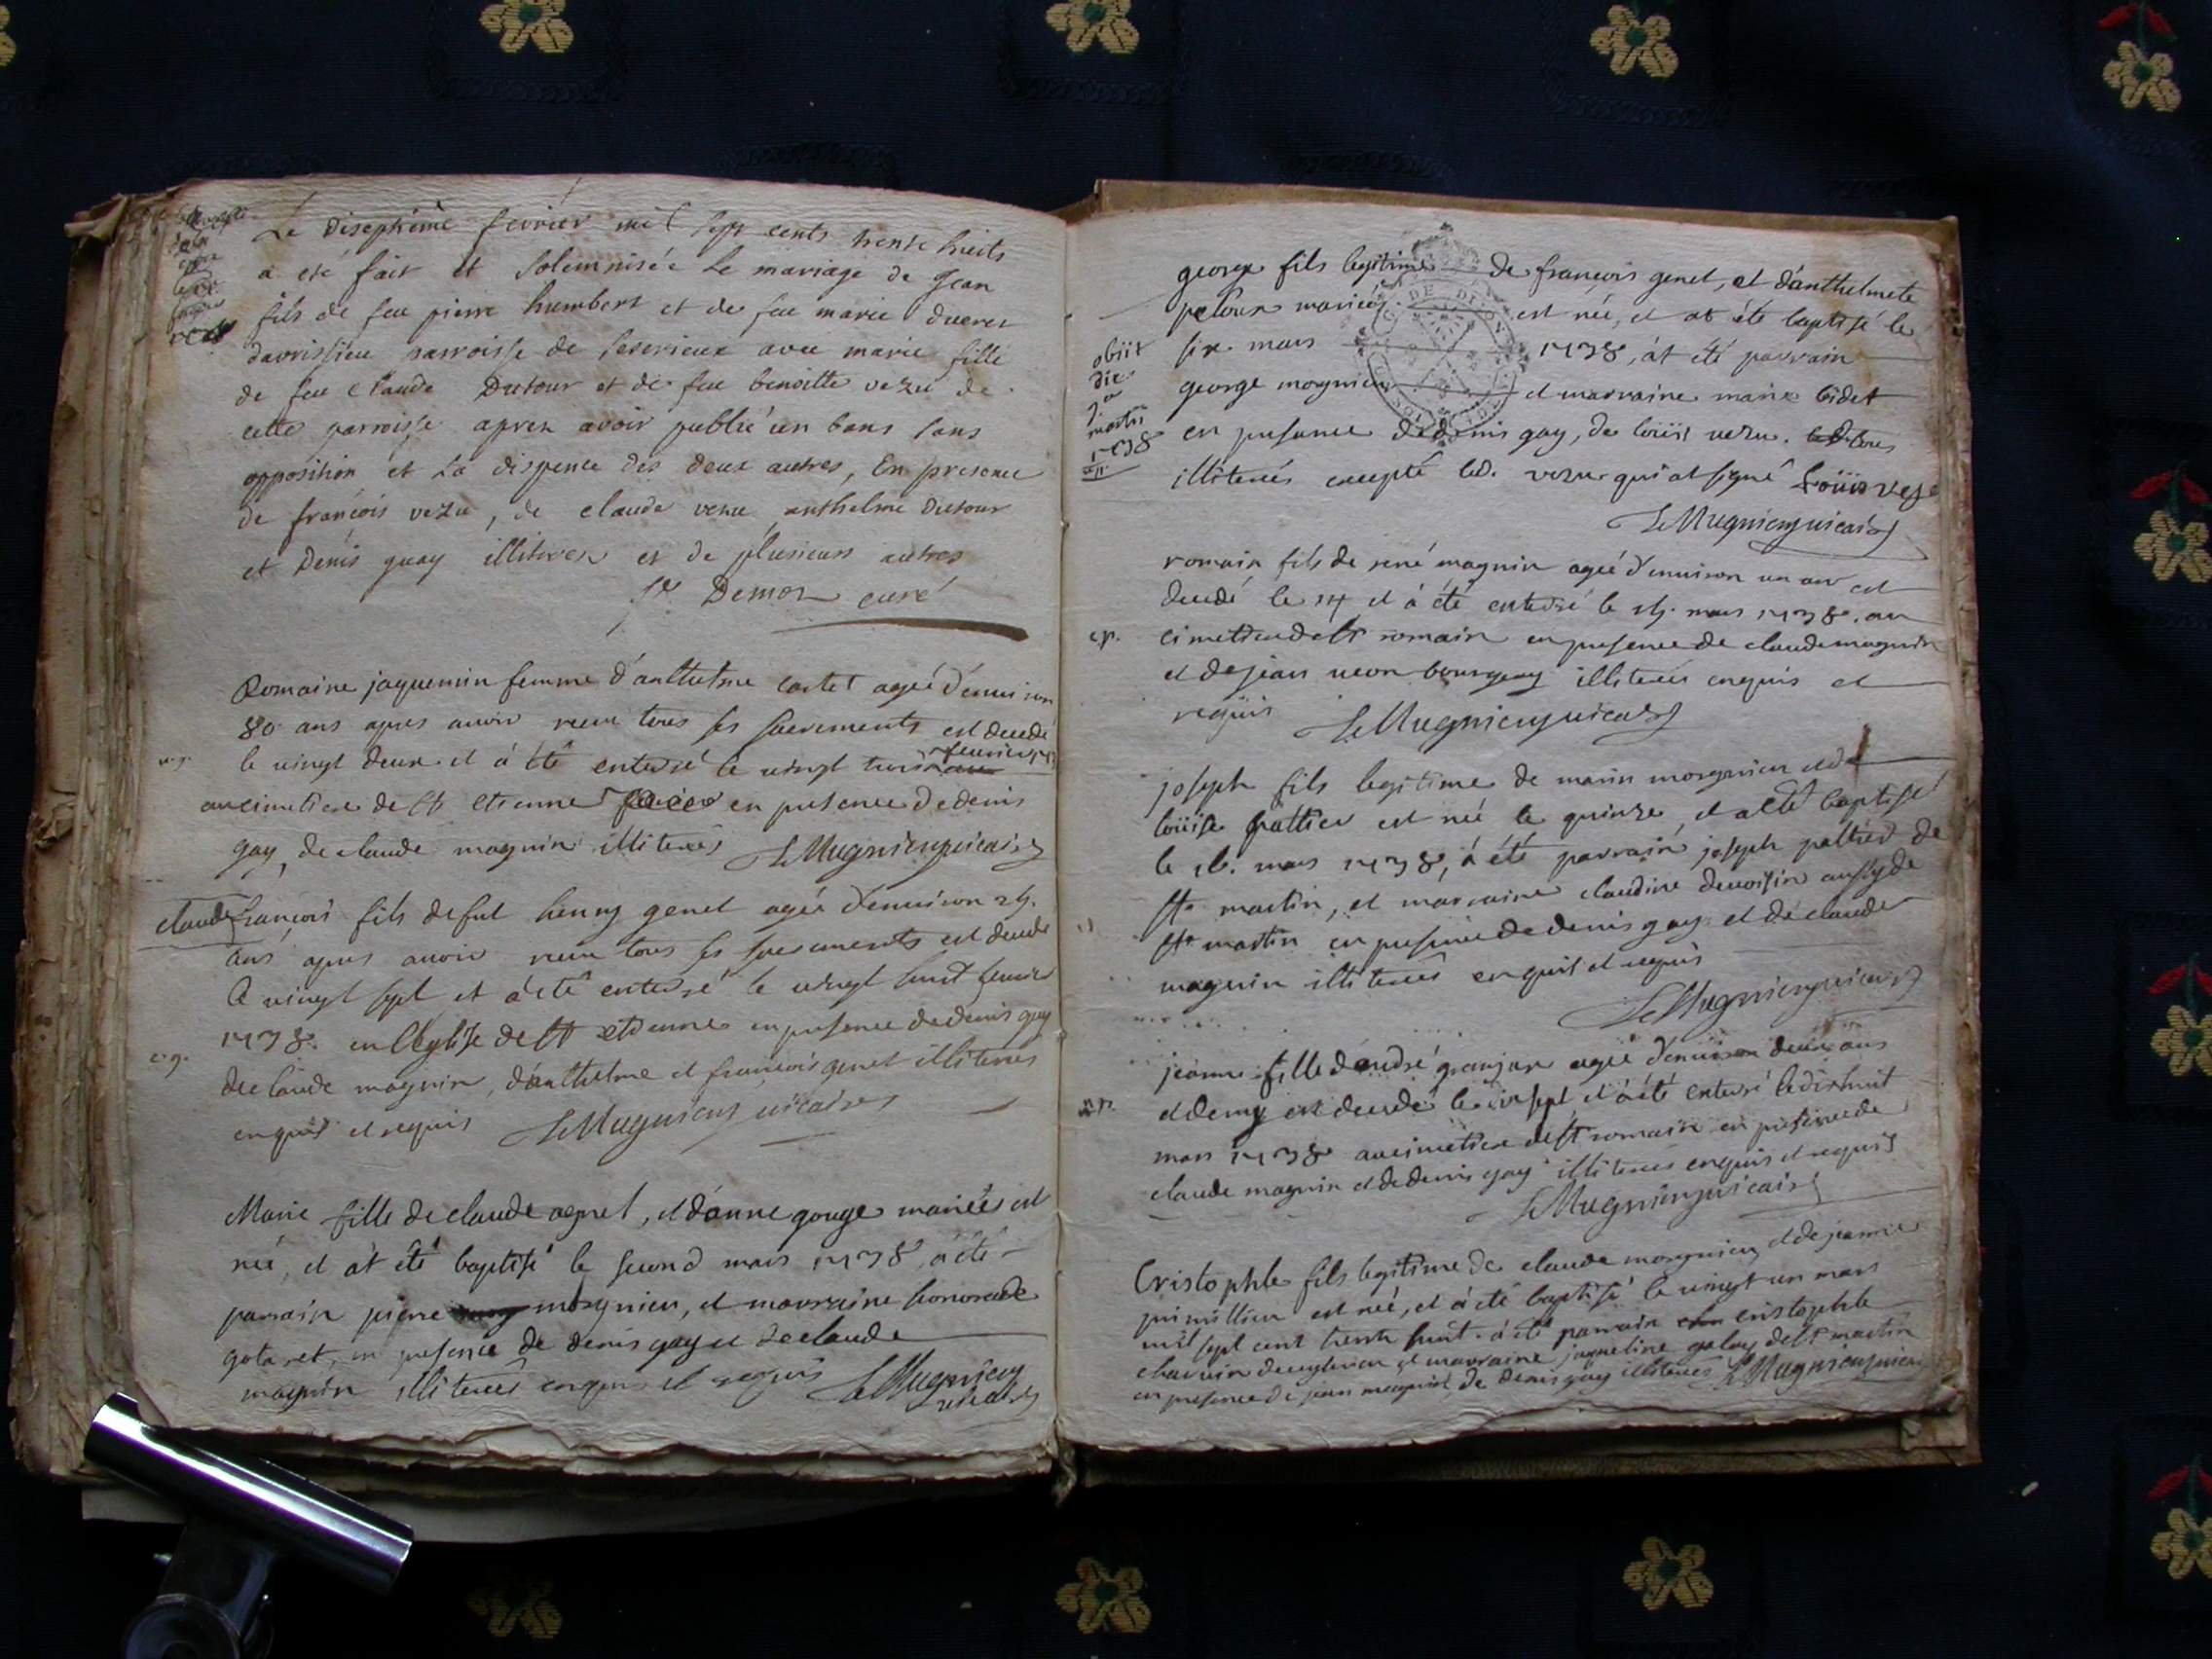 Le diseptieme fevrier mil sept cents trente huits
a eté fait et solemnisée le mariage de Jean
fils de feu pierre humbert et de feu marie ducret
davrissieu parroisse de seserieux avec marie fille
de feu claude Dutour et de feu benoitte vezu de
cette parroisse apres avoir publié un bans sans
opposition et la dispence des deux autres, En presence
de francois vezu, de claude vezu anthelme Dutour
et Denis guay illiteres et de plusieurs autres
Demor curé
Romaine jaquemin femme d'anthelme cartet agée d'environ
80 ans apres avoir receu tous ses sacrements est decedé
le vingt deux et à été enterré le vingt trois fevrier
au cimetiere de st etienne en presence de denis
gay, de claude magnin illiterés LeMugnier vicaire
claude francois fils de fut henry genet agée d'environ
ans apres avoir receu tous ses sacrements est decedé
le vingt sept et à été enterré le vingt huit fevrier
1738. en l'eglise de st etienne en presence de denis gay
de claude magnin, d'anthelme et francois genet illiterés
enquis et requis LeMugnier vicaire
Marie fille de claude agnel, et d'anne gouge mariés est
née, et at été baptisé le second mars 1738, à été
parrain pierre morgnieu, et marraine honorade
en presence de denis gay et de claude
magnin illiterés enquis et requis LeMugnier
vicaire
george fils legitime de francois genet, et d'anthelmete
mariés est née, et at été baptisé le
six mars 1738, at été parrain
george morgnieu et marraine marie bidet
en presence de denis gay, de loüis vezu.
illiterés excepté led. vezu qui at signé Loüis veze
LeMugnier vicaire
obiit
die
9a
martii
1738
romain fils de rené magnin agée d'environ un an est
decedé le 14 et à été enterré le 15. mars 1738. au
cimetiere de st romain en presence de claude magnin
et de jean illiterés enquis et
requis LeMugnier vicaire
joseph fils legitime de marin morgnieu et de
loüise pattier est née le quinze, et a été baptisé
le 16. mars 1738, à été parrain joseph pattier de
st martin, et marraine claudine devoisin aussy de
st martin en presence de denis gay et de claude
magnin illiterés enquis et requis
LeMugnier vicaire
jeanne fille d'andré granjan agée d'environ deux ans
et demy est decedé le dix sept et à été enterré le dix huit
mars 1738 au cimetiere de st romain en presence de
claude magnin et de denis gay illiterés enquis et requis
LeMugnier vicaire
Cristophle fils legitime de claude morgnieu, et de jeanne
primillieu est née, et à été baptisé le vingt un mars
mil sept cent trente huit. à été parrain cristophle
et marraine jaqueline galay de st martin
en presence de jean magnin, de denis gay illiterés LeMugnier vicaire